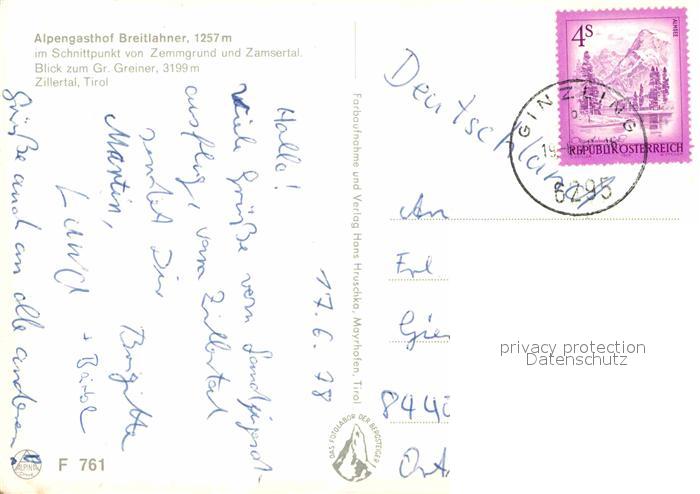 Alpengasthof Breitlahner, 1257 m
im Schnittpunkt von Zemmgrund und Zamsertal.
Blick zum Gr. Greiner, 3199 m
Zillertal, Tirol
17.6.78
Hallo!
Viele Grüße vom
ausflug, vom Zillertal
sendet Dir
Martin, Brigitte
+ Bärbel
Grüße auch an alle anderen!
F 761
ALPINA
Farbaufnahme und Verlag Hans Hruschka, Mayrhofen, Tirol
DAS FOTOLABOR DER BERGSTEIGER
Deutschland
4 S
ALMSEE
REPUBLIK ÖSTERREICH
GINZLING
6295
An
Erl
Gie
844
Ort
privacy protection
Datenschutz